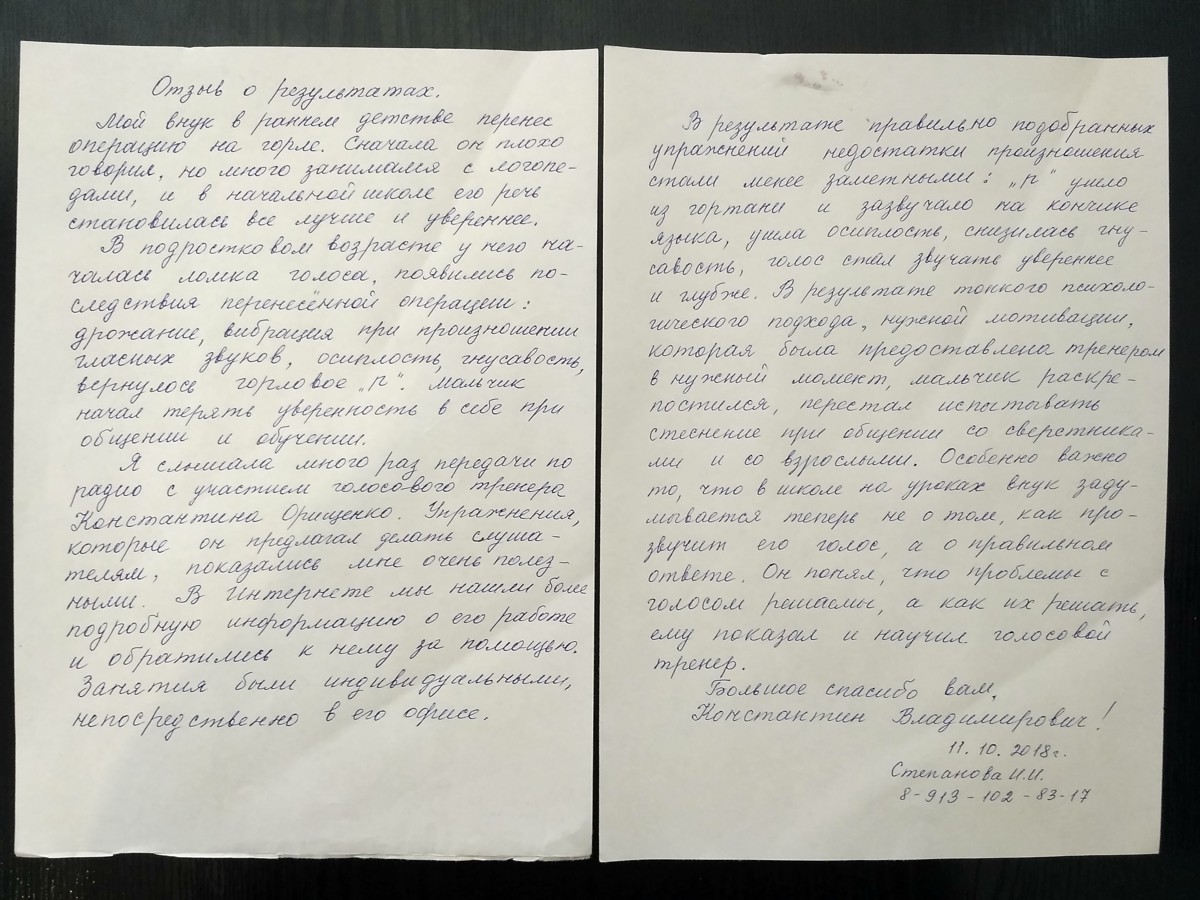 Отзыв о результатах.
Мой внук в раннем детстве перенес
операцию на горле. Сначала он плохо
говорил, но много занимался с логопе-
дами, и в начальной школе его речь
становилась все лучше и увереннее.
В подростковом возрасте у него на-
чалась ломка голоса, появились по-
следствия перенесённой операции:
дрожание, вибрация при произношении
гласных звуков, осиплость, гнусавость,
вернулось горловое „р“. Мальчик
начал терять уверенность в себе при
общении и обучении.
Я слышала много раз передачи по
радио с участием голосового тренера
Константина Орищенко. Упражнения,
которые он предлагал делать слуша-
телям, показались мне очень полез-
ными. В Интернете мы нашли более
подробную информацию о его работе
и обратились к нему за помощью.
Занятия были индивидуальными,
непосредственно в его офисе.
В результате правильно подобранных
упражнений недостатки произношения
стали менее заметными: „р“ ушло
из гортани и зазвучало на кончике
языка, ушла осиплость, снизилась гну-
савость, голос стал звучать увереннее
и глубже. В результате тонкого психоло-
гического подхода, нужной мотивации,
которая была предоставлена тренером
в нужный момент, мальчик раскре-
постился, перестал испытывать
стеснение при общении со сверстника-
ми и со взрослыми. Особенно важно
то, что в школе на уроках внук заду-
мывается теперь не о том, как про-
звучит его голос, а о правильном
ответе. Он понял, что проблемы с
голосом решаемы, а как их решать,
ему показал и научил голосовой
тренер.
Большое спасибо вам,
Константин Владимирович!
11.10.2018г.
Степанова И.И.
8-913-102-83-17